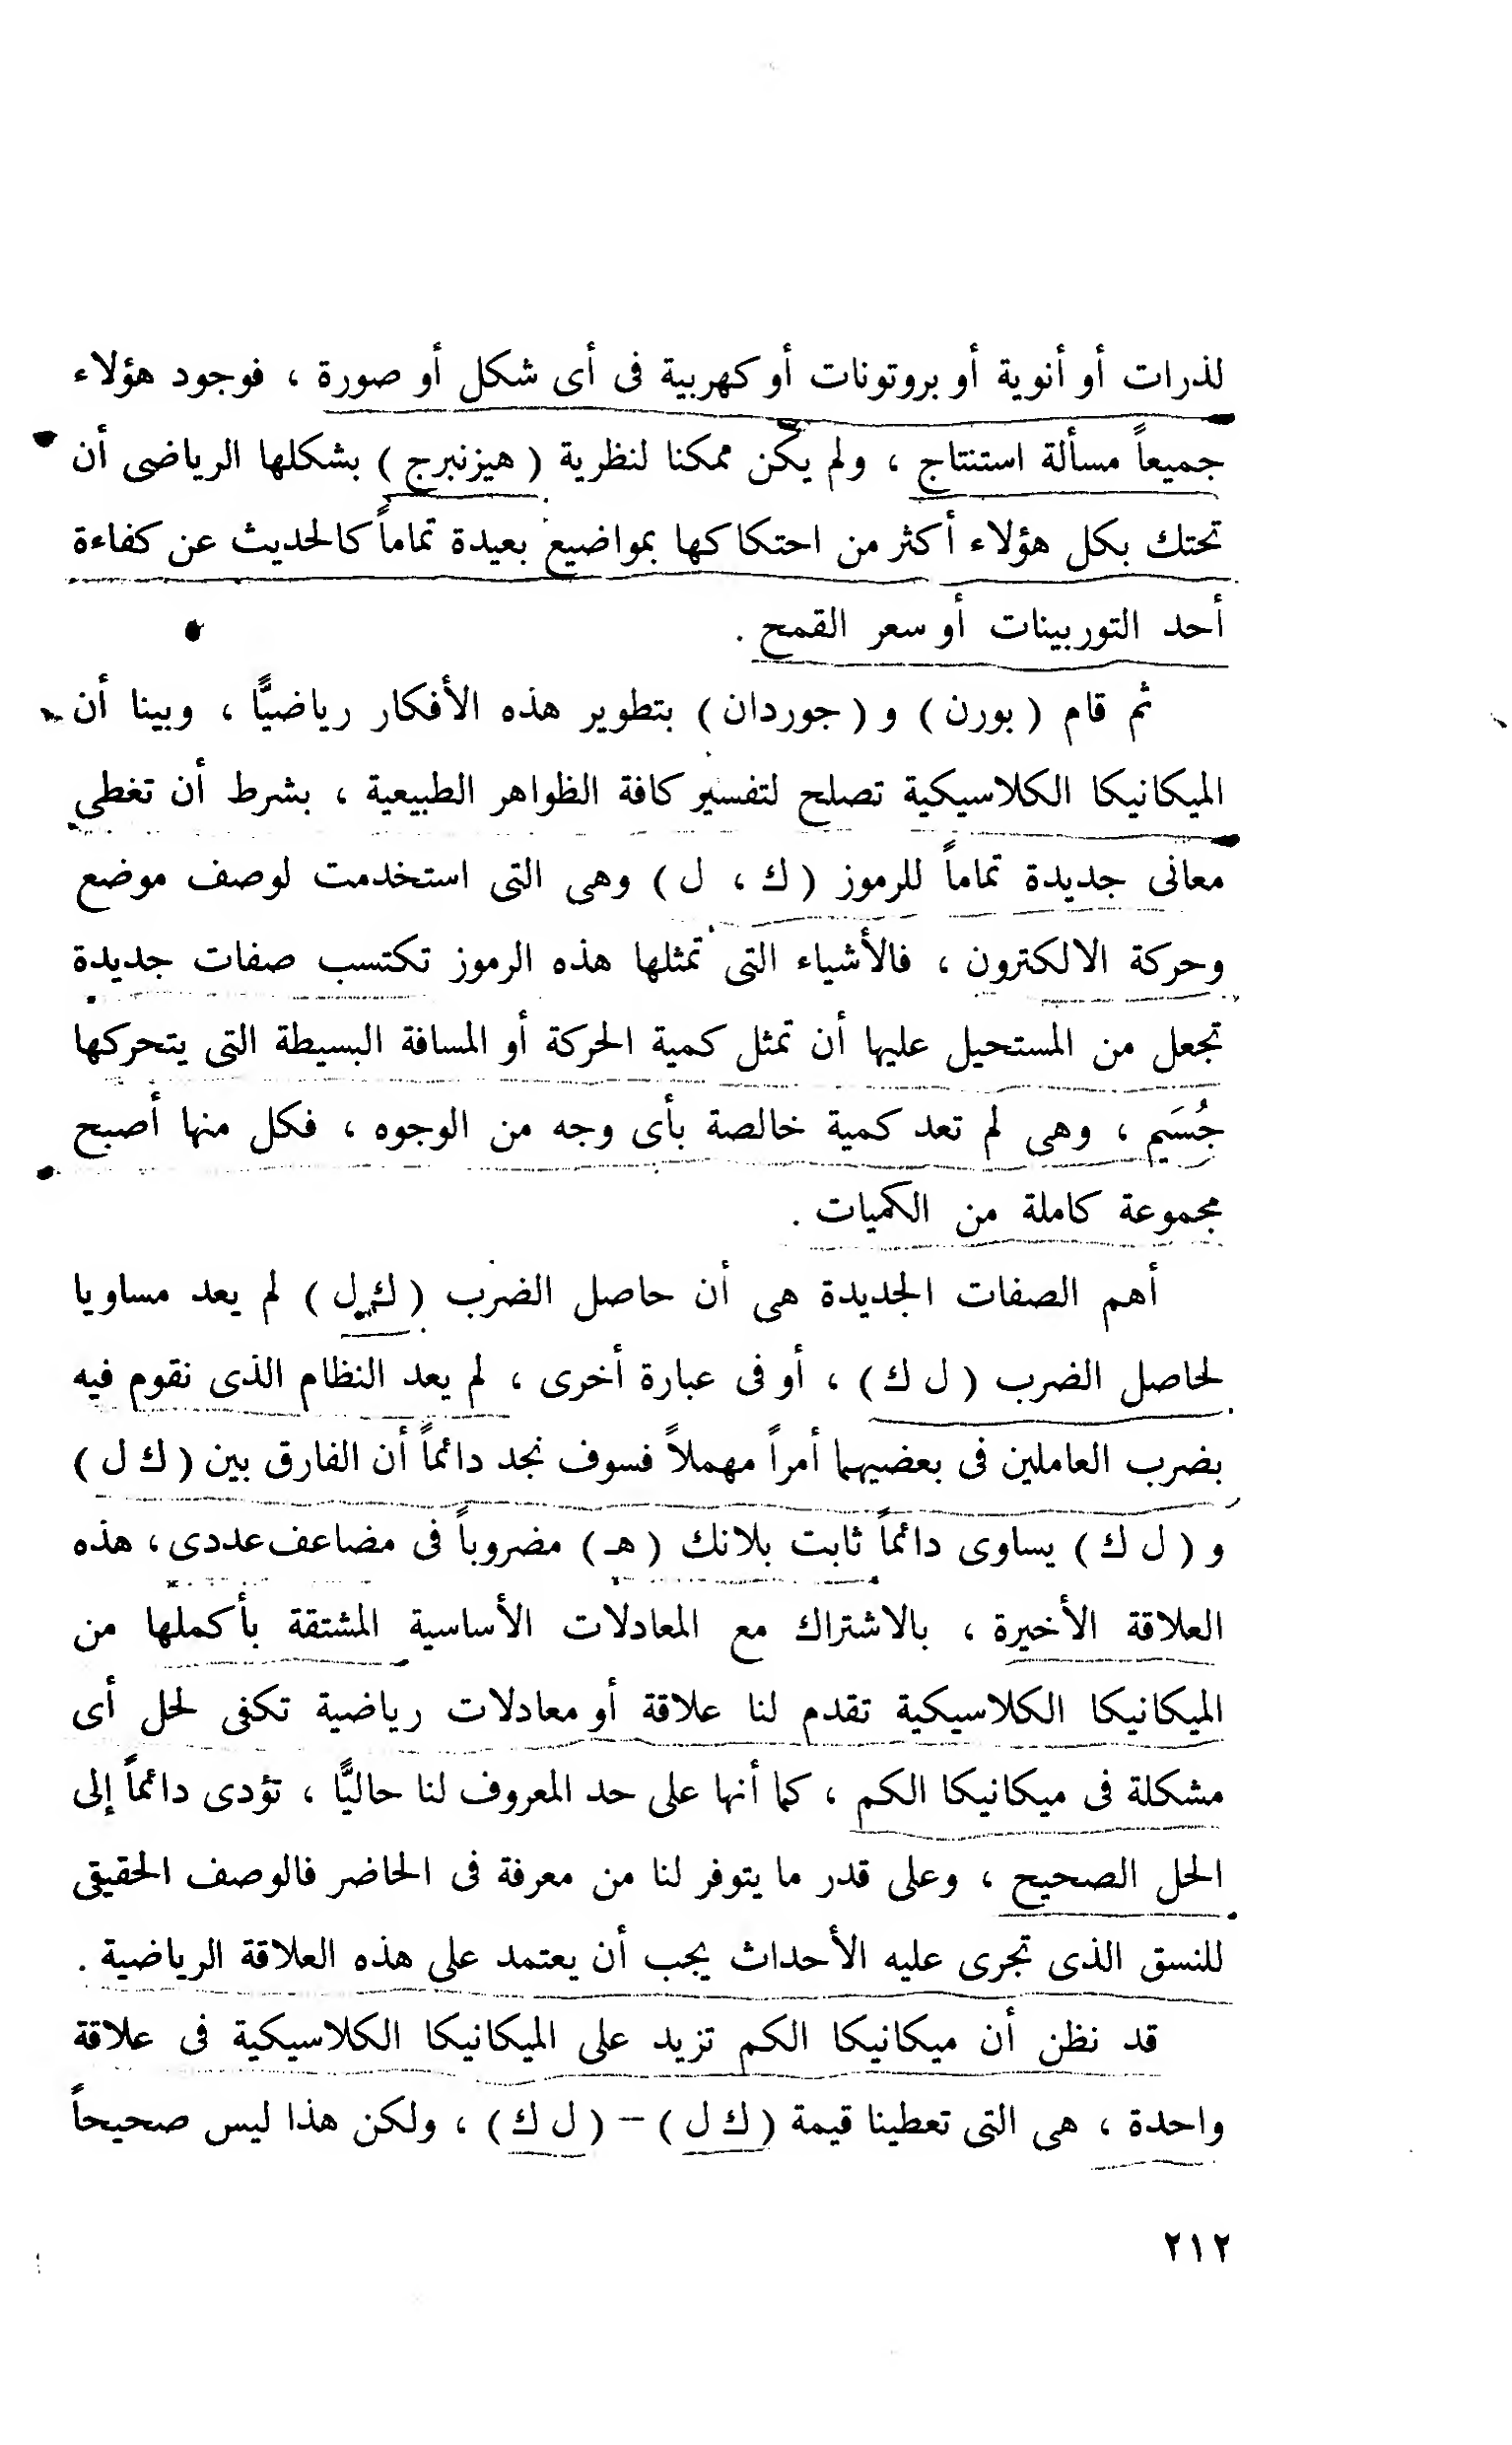 لذرات أو أنوية أو بروتونات أو كهربية فى أى شكل أو صورة ، فوجود هؤلاء
جميعاً مسألة استنتاج ، ولم يكن ممكنا لنظرية ( هيزنبرج ) بشكلها الرياضى أن
تحتك بكل هؤلاء أكثر من احتكاكها بمواضيع بعيدة تماماً كالحديث عن كفاءة
أحد التوربينات أو سعر القمح .
ثم قام ( بورن ) و ( جوردان ) بتطوير هذه الأفكار رياضيًّا ، وبينا أن
الميكانيكا الكلاسيكية تصلح لتفسير كافة الظواهر الطبيعية ، بشرط أن تغطى
معانى جديدة تماماً للرموز ( ك ، ل ) وهى التى استخدمت لوصف موضع
وحركة الالكترون ، فالأشياء التى تمثلها هذه الرموز تكتسب صفات جديدة
تجعل من المستحيل عليها أن تمثل كمية الحركة أو المسافة البسيطة التى يتحركها
جُسَيم ، وهى لم تعد كمية خالصة بأى وجه من الوجوه ، فكل منها أصبح
مجموعة كاملة من الكميات .
أهم الصفات الجديدة هى أن حاصل الضرب ( ك ل ) لم يعد مساويا
لحاصل الضرب ( ل ك ) ، أو فى عبارة أخرى ، لم يعد النظام الذى نقوم فيه
بضرب العاملين فى بعضيهما أمراً مهملاً فسوف نجد دائماً أن الفارق بين ( ك ل )
و ( ل ك ) يساوى دائماً ثابت بلانك ( هـ ) مضروباً فى مضاعف عددى ، هذه
العلاقة الأخيرة ، بالاشتراك مع المعادلات الأساسية المشتقة بأكملها من
الميكانيكا الكلاسيكية تقدم لنا علاقة أو معادلات رياضية تكفى لحل أى
مشكلة فى ميكانيكا الكم ، كما أنها على حد المعروف لنا حاليًّا ، تؤدى دائماً إلى
الحل الصحيح ، وعلى قدر ما يتوفر لنا من معرفة فى الحاضر فالوصف الحقيقى
للنسق الذى تجرى عليه الأحداث يجب أن يعتمد على هذه العلاقة الرياضية .
قد نظن أن ميكانيكا الكم تزيد على الميكانيكا الكلاسيكية فى علاقة
واحدة ، هى التى تعطينا قيمة ( ك ل ) – ( ل ك ) ، ولكن هذا ليس صحيحاً
٢١٢